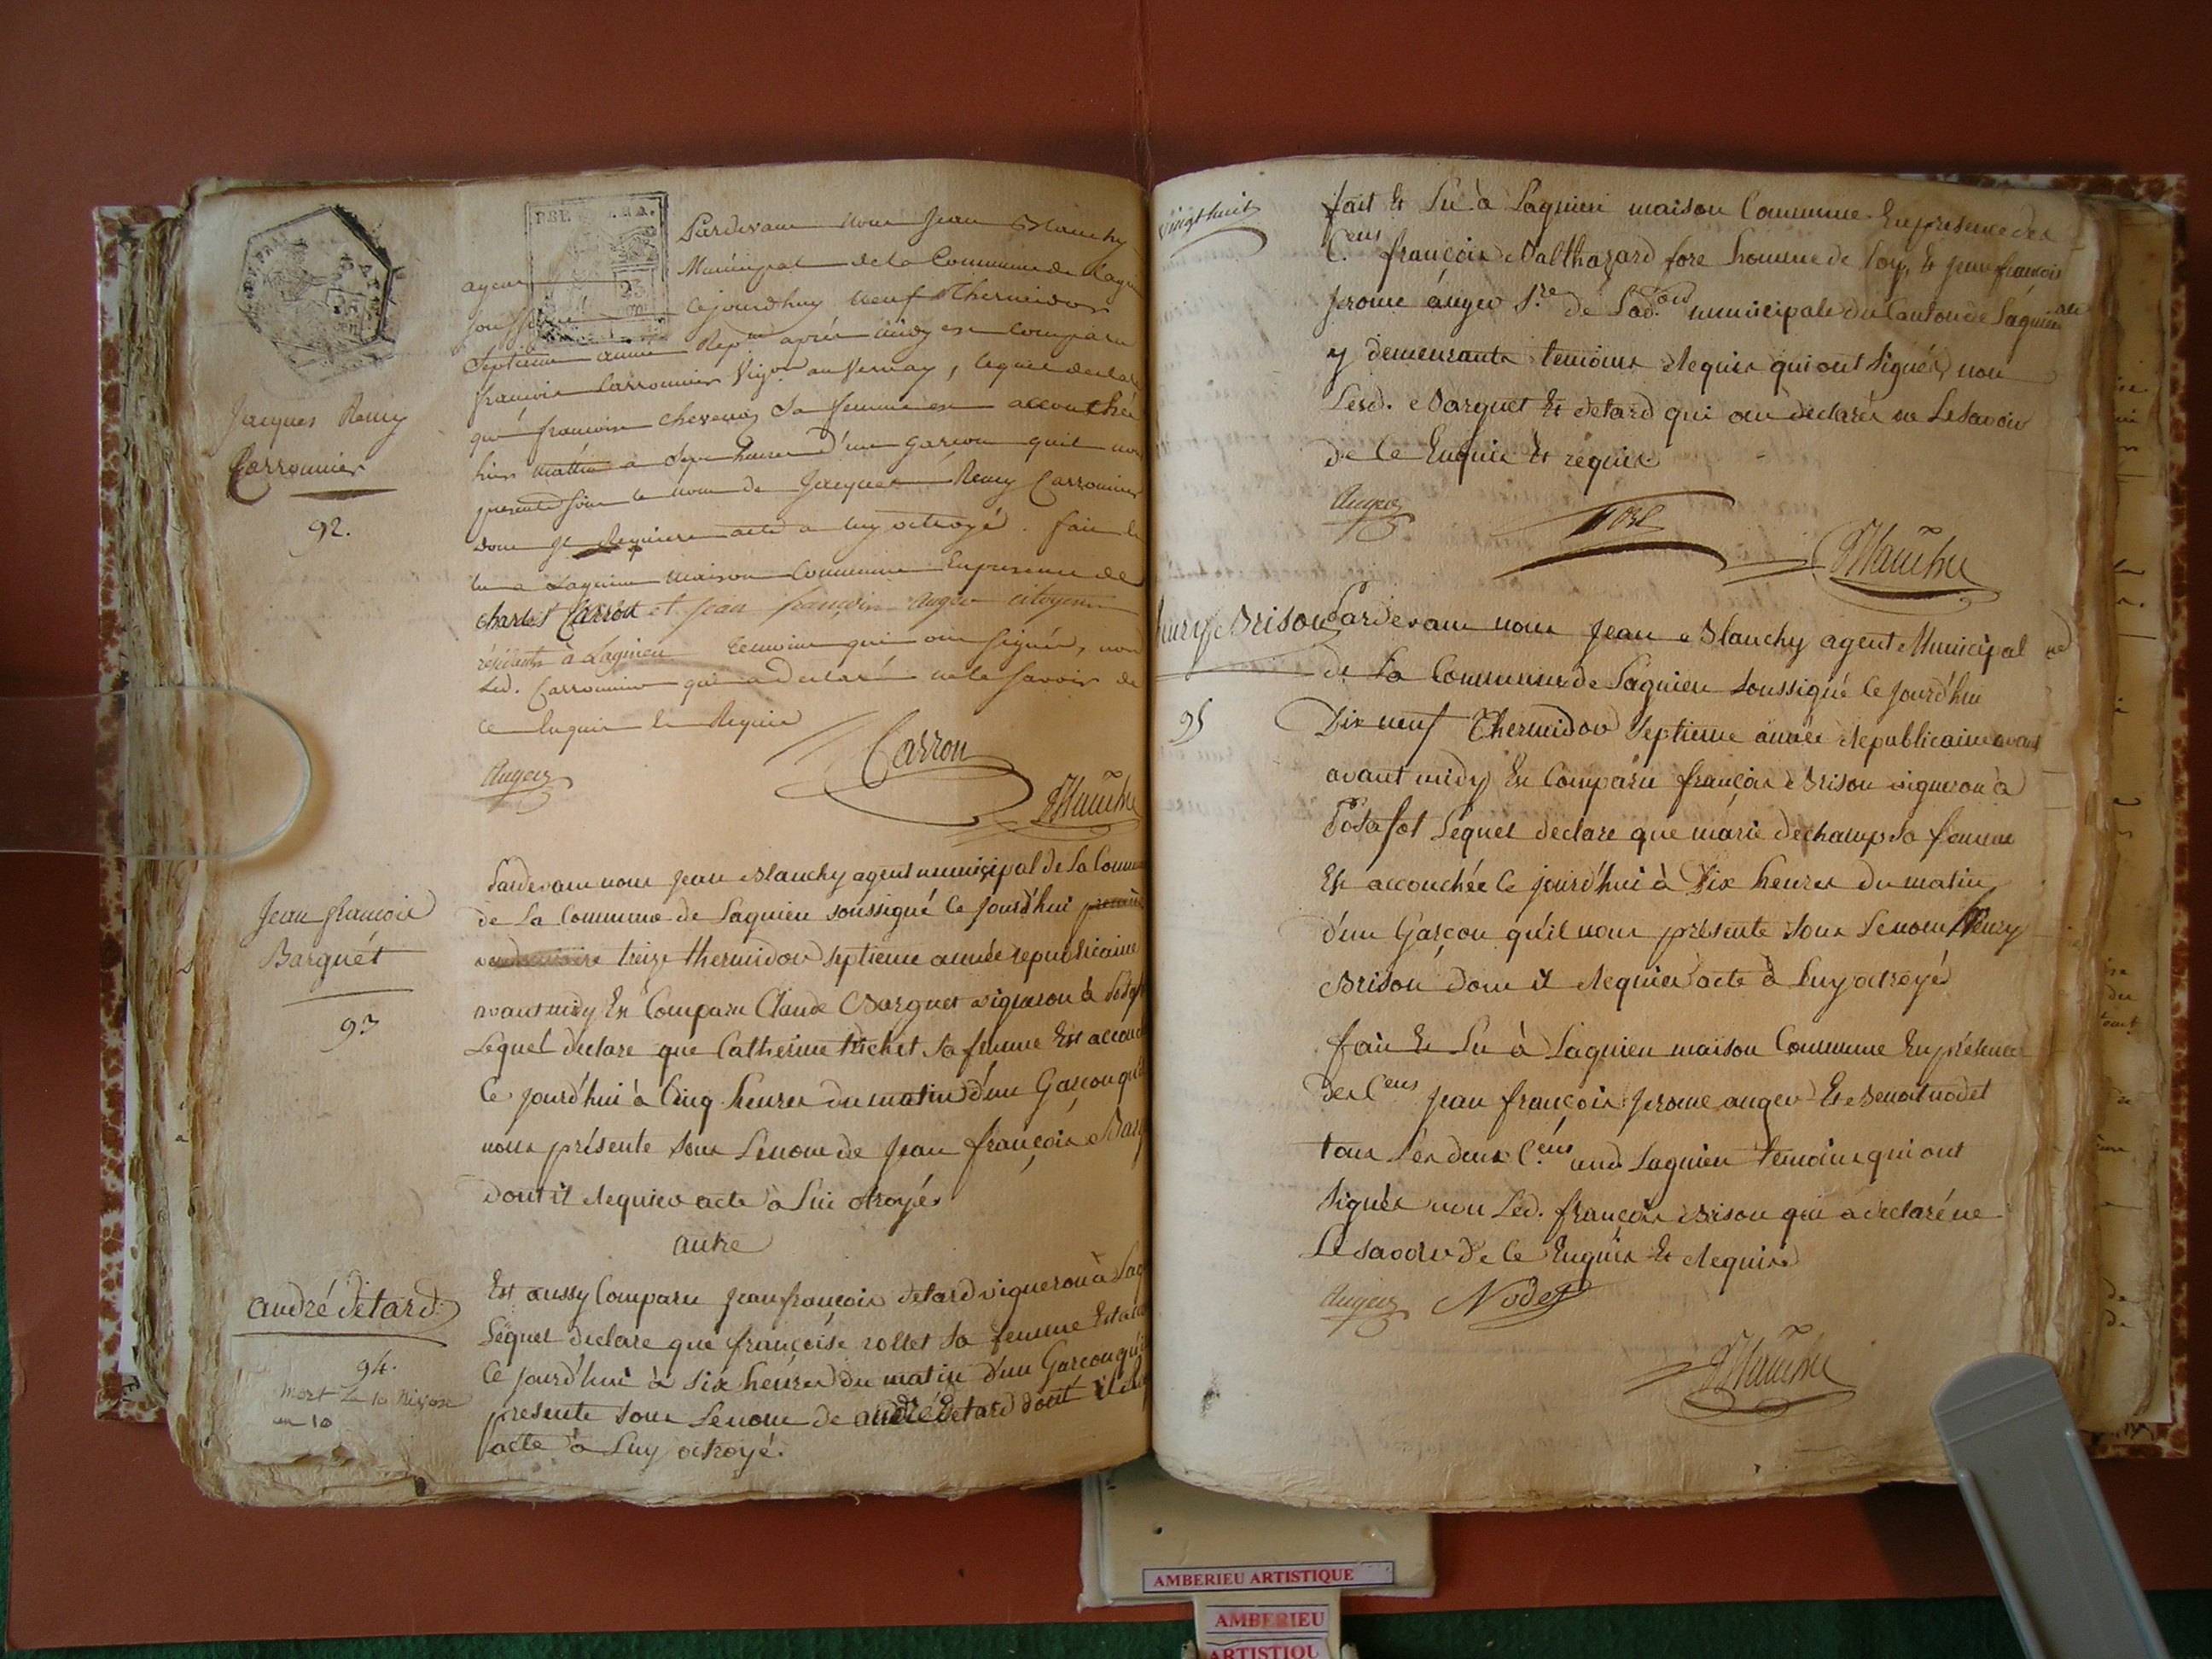 Pardevant Nous Jean Blanchy
agent Municipal de la Commune de Lagnieu
soussigné Cejourdhuy Neuf Thermidor
Septieme année Rep.ne après midy est comparu
françois Carronnier Vigon au Vernay, lequel declare
que francoise chevenoz Sa femme est accouchée
hier mattin a sept heures d'un garcon quil nous
presente sous le nom de Jacques Remy Carronnier
dont Il Requiere acte a luy octroyé. fait et
lu a Lagnieu maison Commune En presence de
charles Carron et jean françois auger citoyens
résidents à Lagnieu temoins qui ont signés, non
Led. Carronnier qui a declaré ne le savoir de
ce Enquis et Requis
Jacques Remy
Carronnier
92.
Auger
Carron
JBlanchy
Pardevant nous Jean Blanchy agent municipal de la Commune
de La Commune de Lagnieu soussigné Ce Jourd'hui
treize thermidor septieme année republicaine
avant midy Est Comparu Claude Barguet vigneron à
Lequel declare que Catherine trichet Sa femme Est accouchée
Ce jourd'hui à Cinq heures du matin d'un Garçon qu'il
nous présente sous Lenom de Jean françois
dont il Requier acte à Lui otroyés
Jean francois
Barguét
93
autre
Est aussy Comparu Jean françois detard vigneron à
Lequel declare que françoise rollet Sa femme
Ce jourd'hui à six heures du matin d'un Garcon qu'il
presente sous Lenom de andré detard dont il
acte à Luy octroyé.
andré detard
94.
mort Le 10 Nivose
an 10
vingt huit
fait Et Lu à Lagnieu maison Commune En presence des
C.ens françois Balthazard fore homme de Loy, Et Jean françois
Jerome auger S.re de Lad.on municipale du Canton de Lagnieu
y demeurants temoins Requis qui ont Signés, non
Lesd. Barguet Et detard qui ont declarés ne Le savoir
de Ce Enquis Et requis
Auger
fore
JBlanchy
henry Brison
95
Pardevant nous Jean Blanchy agent Municipal
de La Commune de Lagnieu soussigné Ce jourd'hui
Dix neuf Thermidor Septieme année Republicaine avant
avant midy Est Comparu françois Brison vigneron à
Posafol Lequel declare que marie dechamp sa femme
Est accouchée Ce jourd'hui à Dix heures du matin
d'un Garçon qu'il nous présente sous Lenom henry
Brison dont il Requier acte à Luy octroyé
fait Et Lu à Lagnieu maison Commune En présence
des C.ens Jean françois Jerome auger Et Benoit nodet
tous Les deux C.ens Lagnieu temoins qui ont
Signés non Led. françois Brison qui a declaré ne
Le savoir de Ce Enquis Et Requis
Auger Nodet
JBlanchy
AMBERIEU ARTISTIQUE
AMBERIEU
ARTISTIQU